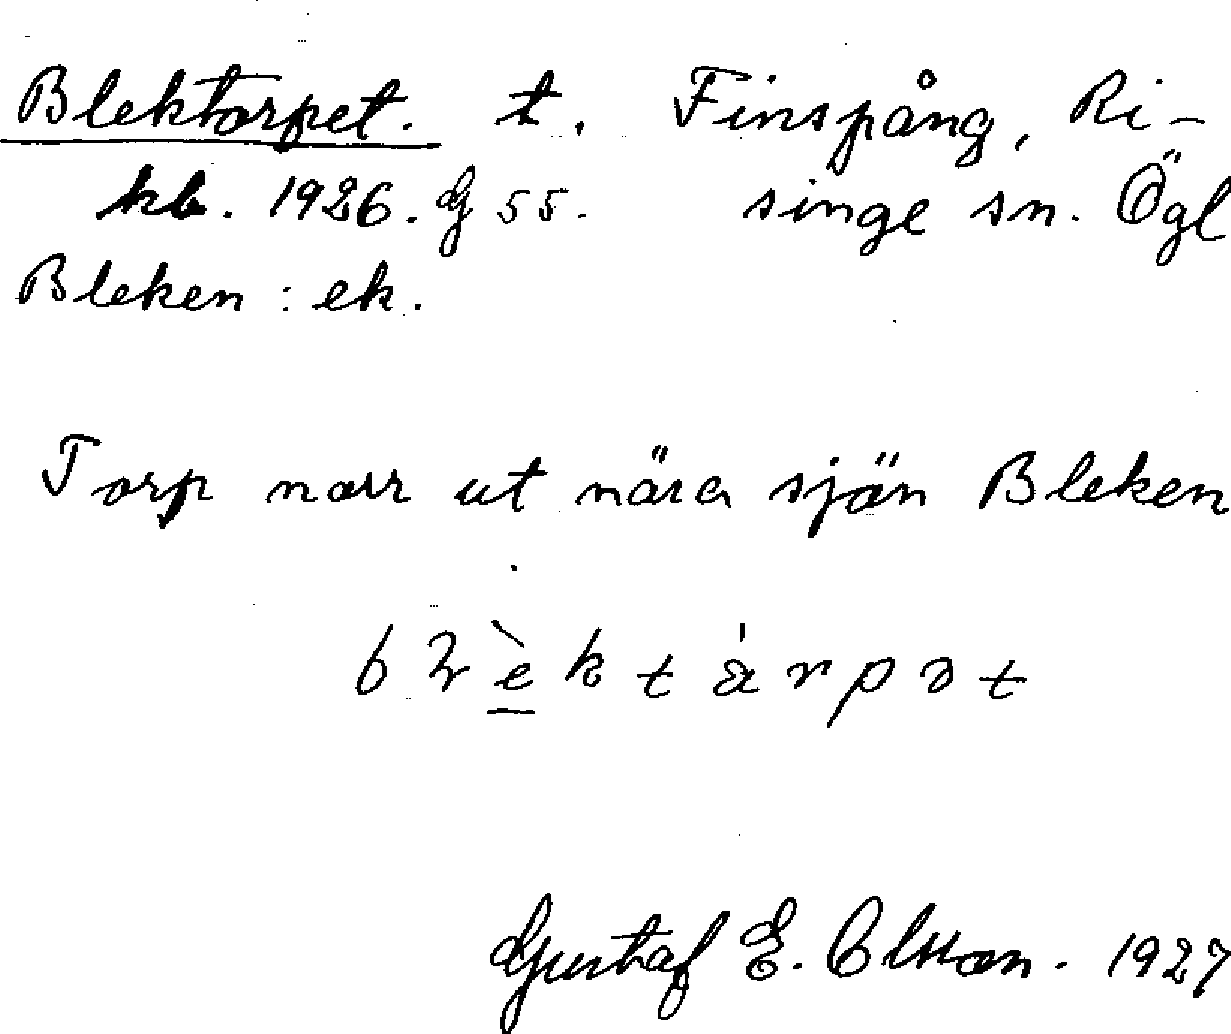 Blektorpet. t. Finspång, Ri-
kb. 1926. G 55. singe sn. Ögl
Bleken: ek.
Torp norr ut nära sjön Bleken
Gustaf E. Olsson. 1927